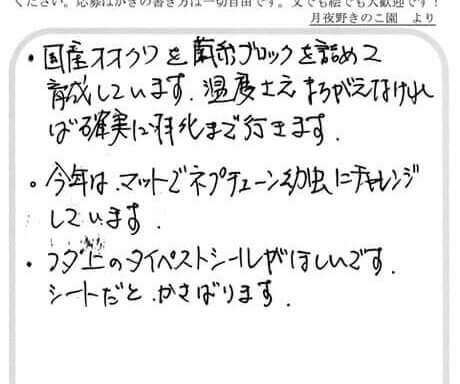 ください。応募はがきの書き方は一切自由です。文でも絵でも大歓迎です！
月夜野きのこ園　より
・国産オオクワを菌糸ブロックを詰めて
育成しています。温度さえまちがえなければ
ば確実に羽化まで行きます。
。今年は、マットでネプチューン幼虫にチャレンジ
しています。
・フタ上のタイペストシールがほしいです。
シートだと、かさばります。